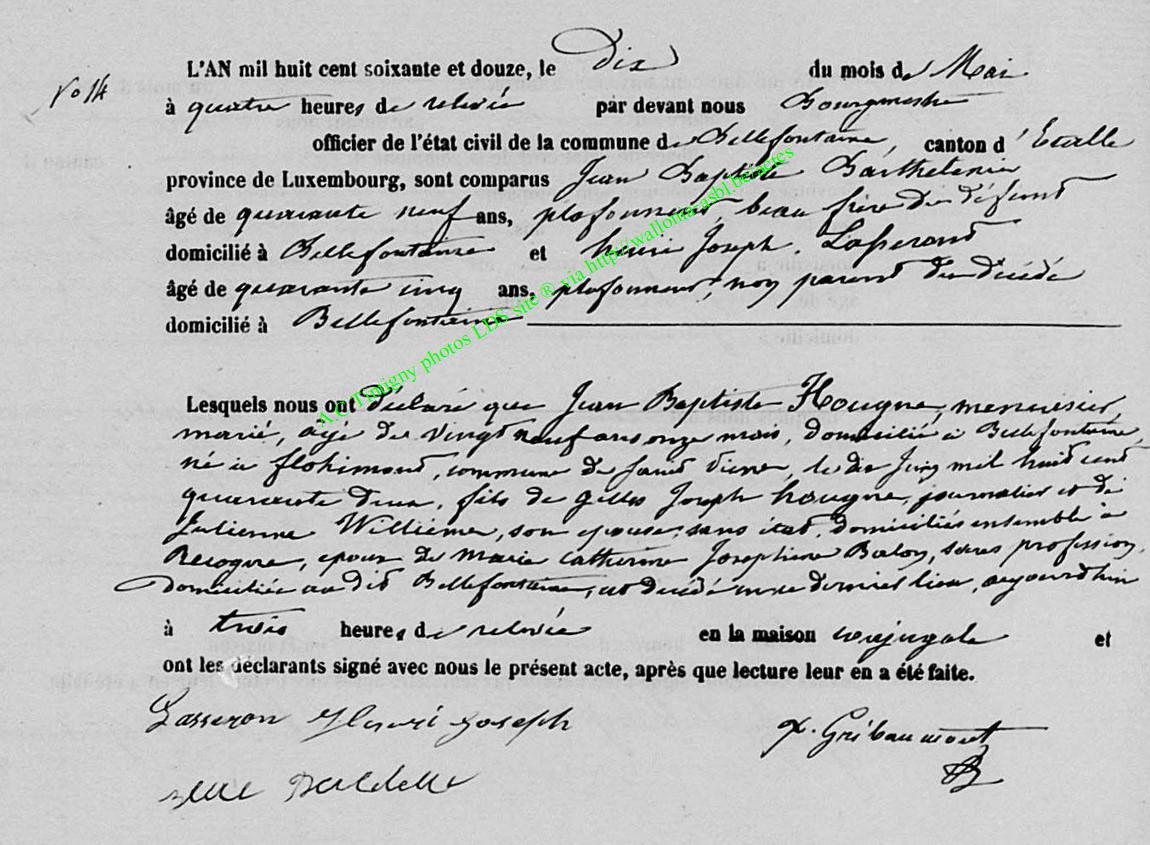 No 14
L'AN mil huit cent soixante et douze, le dix du mois de Mai
à quatre heures de relevée par devant nous Bourgmestre
officier de l'état civil de la commune de Bellefontaine, canton d'Etalle
province de Luxembourg, sont comparus Jean Baptiste Barthelemie
âgé de quarante neuf ans, plafonneur, beau frère du défunt
domicilié à Bellefontaine et henri Joseph Lasseront
âgé de quarante cinq ans, plafonneur, non parent du décédé
domicilié à Bellefontaine
A.C. Tintigny photos LDS site ® via http://wallonia.asbl.be/actes
Lesquels nous ont déclaré que Jean Baptiste Hougne, menuisier,
marié, âgé de vingt neuf ans onze mois, domicilié à Bellefontaine,
né à flohimont, commune de saint pierre, le dix Juin mil huit cent
quarante deux, fils de gilles Joseph hougne, journalier et de
Julienne Willieme, son epouse, sans état, domiciliés ensemble à
Recogne, epoux de Marie Catherine Josephine Balon, sans profession,
domiciliée au dit Bellefontaine, est décédé en ce dernier lieu, aujourd'hui
à trois heures de relevée en la maison conjugale et
ont les déclarants signé avec nous le présent acte, après que lecture leur en a été faite.
Lasseron Henri Joseph
Gribaumont